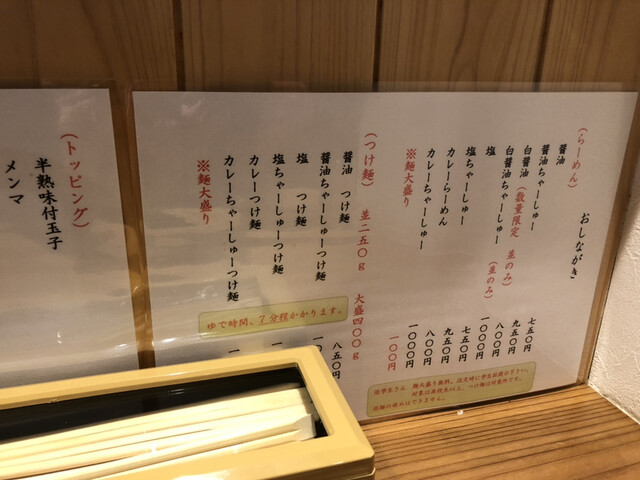 おしながき
(らーめん)
醤油 七五〇円
醤油ちゃーしゅー 九五〇円
白醤油 (数量限定 並のみ) 八〇〇円
白醤油ちゃーしゅー (並のみ) 一〇〇〇円
塩 七五〇円
塩ちゃーしゅー 九五〇円
カレーらーめん 八〇〇円
カレーちゃーしゅー 一〇〇〇円
※麺大盛り 一〇〇円
(つけ麺) 並二五〇g 大盛四〇〇g
醤油 つけ麺 八五〇円
醤油ちゃーしゅーつけ麺 一
塩 つけ麺
塩ちゃーしゅーつけ麺 一
カレーつけ麺
カレーちゃーしゅーつけ麺 一
※麺大盛り
ゆで時間、7分程かかります。
※学生さん 麺大盛り無料。注文時に学生証提示下さい。
対象は高校生以上、つけ麺は対象外です。
(トッピング)
半熟味付玉子
メンマ